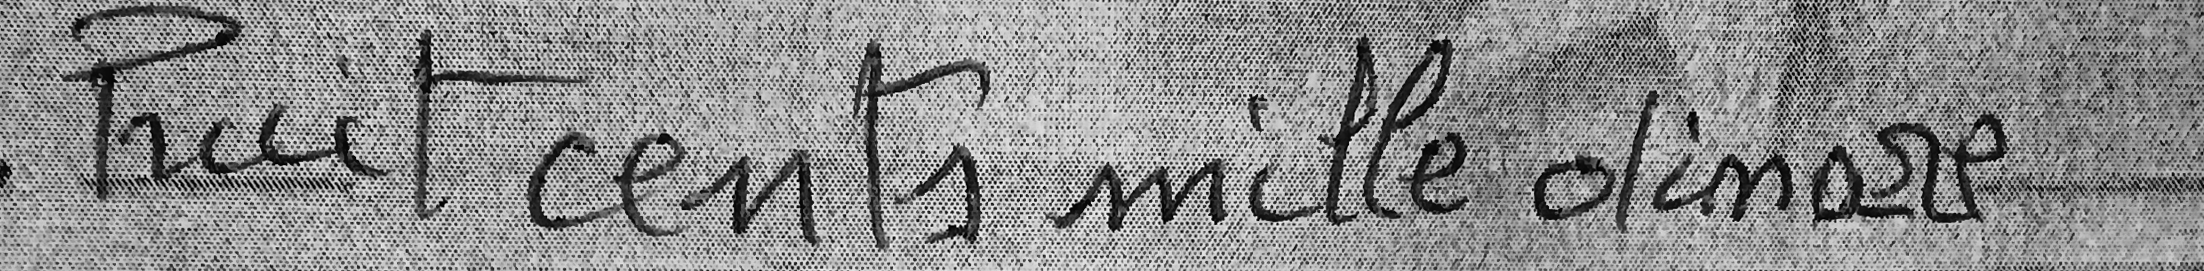 huit cents mille dinars